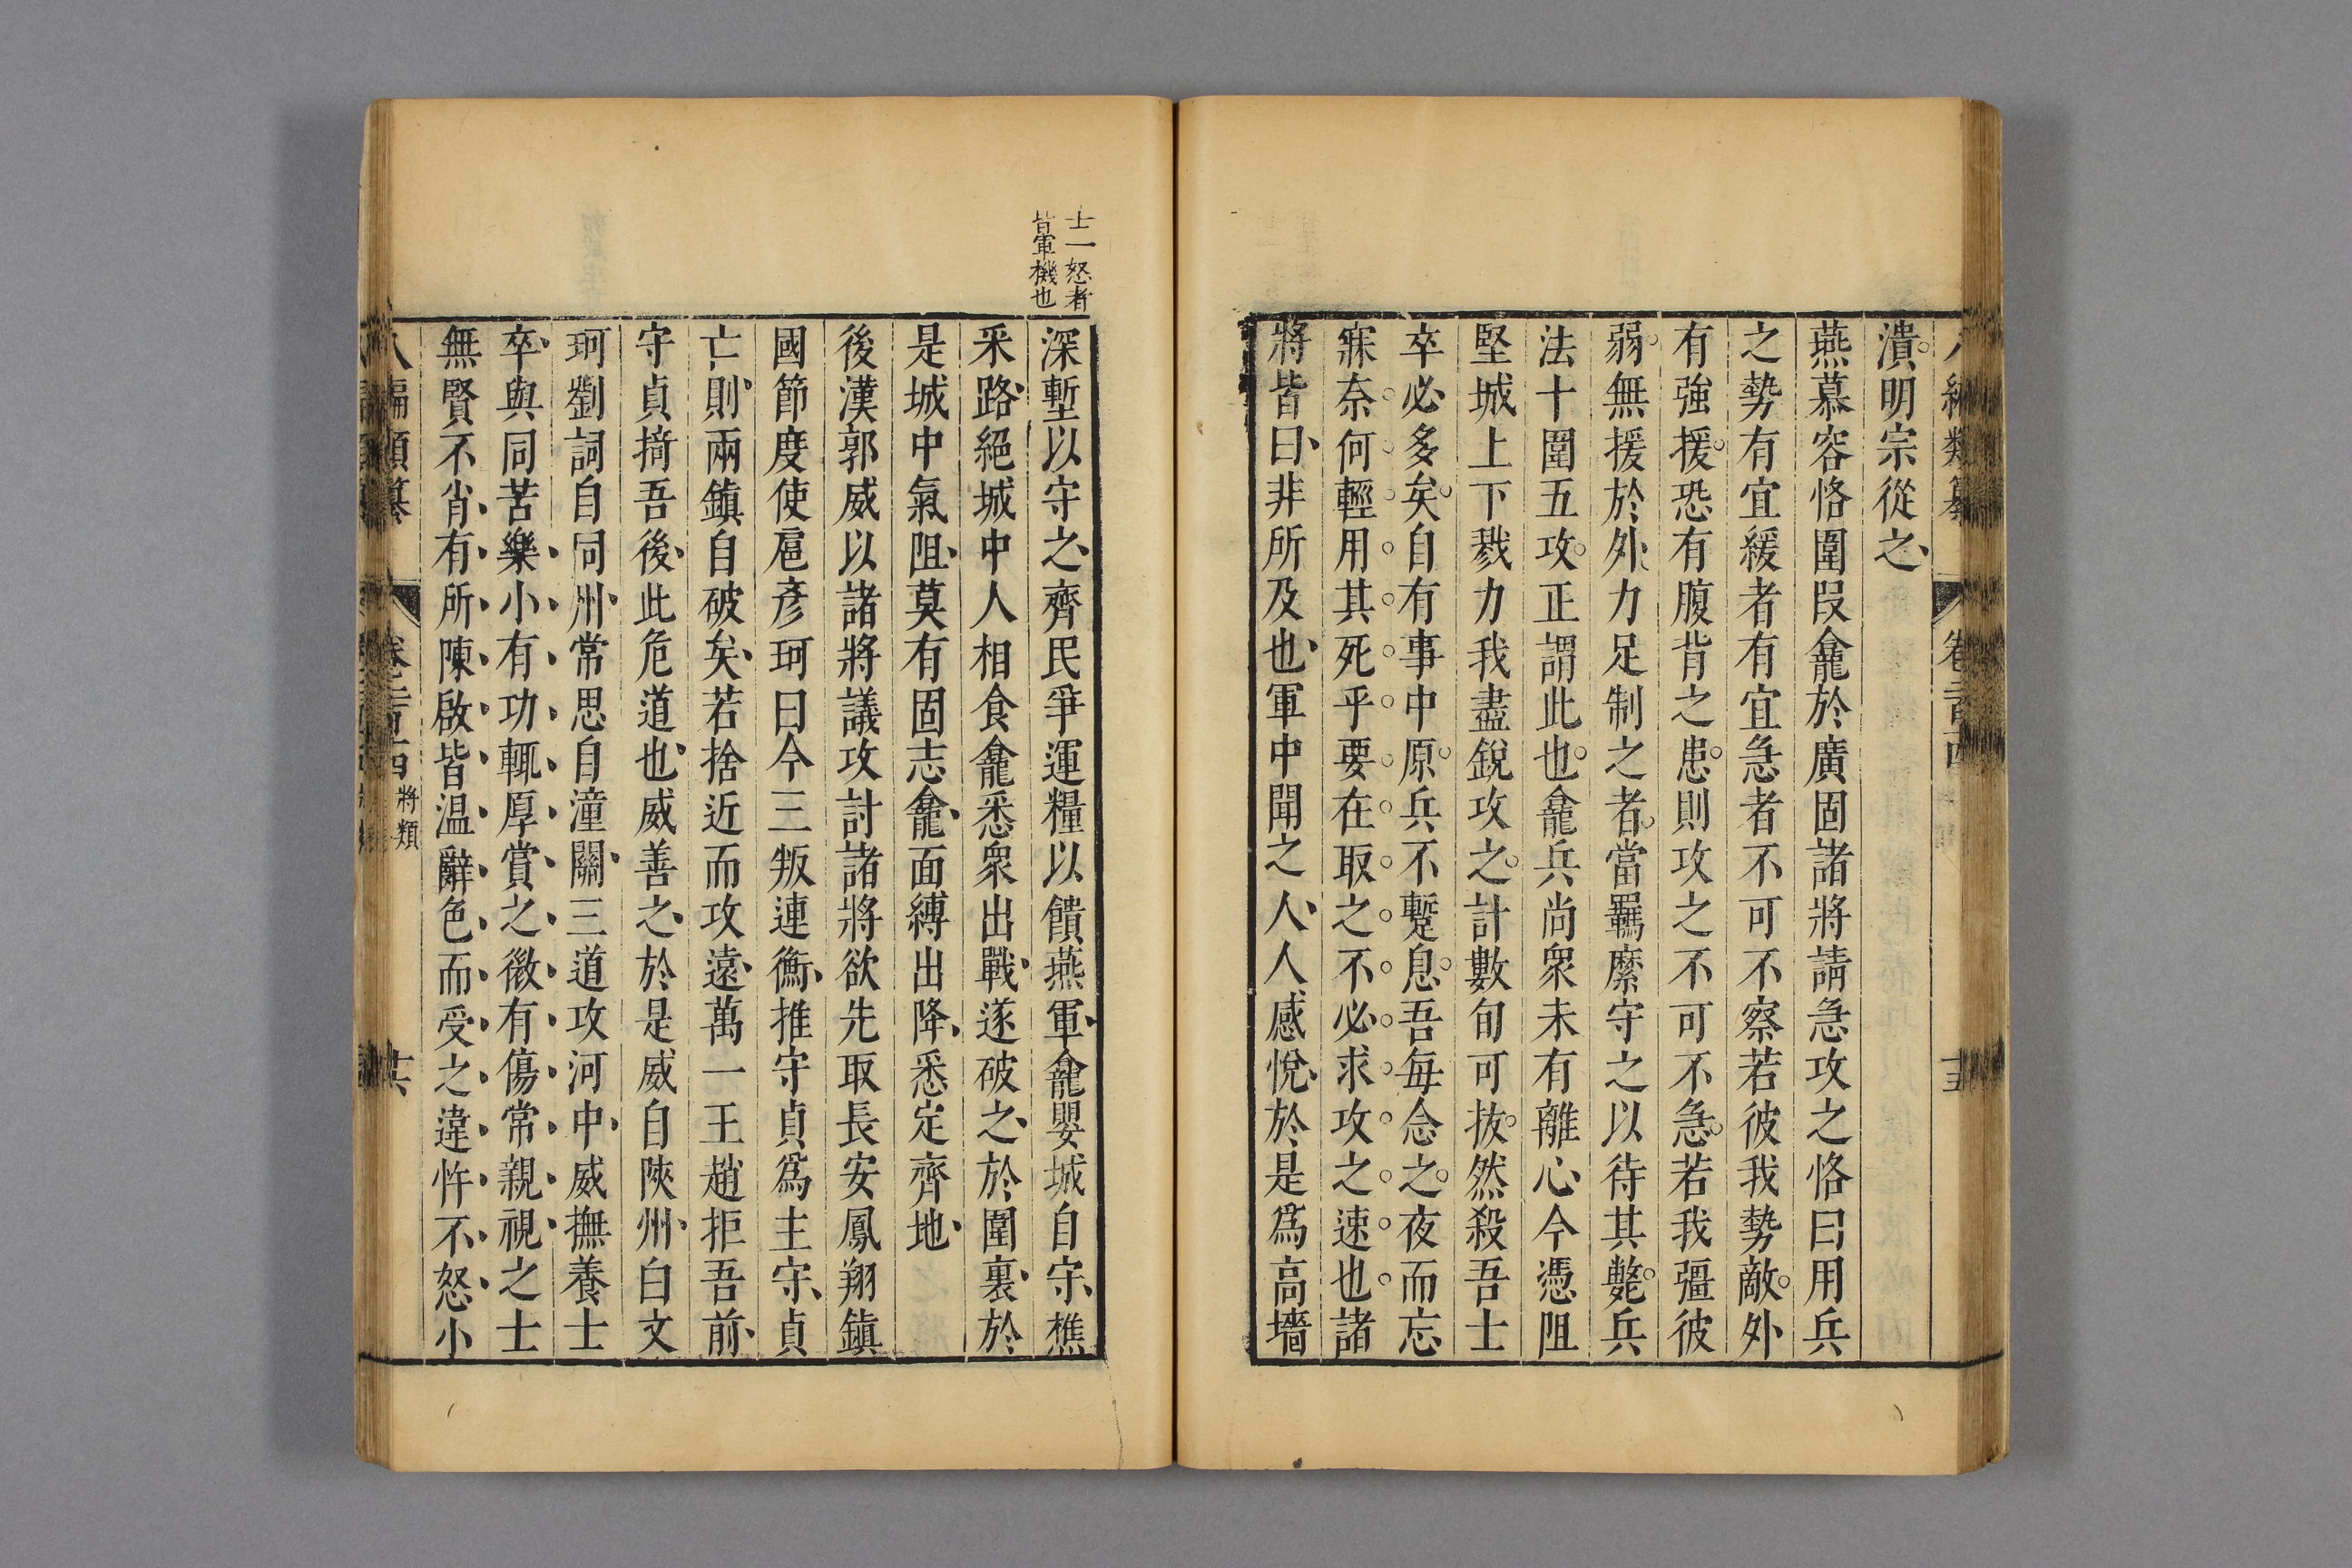 潰明宗從之
燕慕容恪圍叚龕於廣固諸將請急攻之恪曰用兵
之勢有宜緩者有宜急者不可不察若彼我勢敵外
有強援恐有腹背之患則攻之不可不急若我彊彼
弱無援於外力足制之者當羈縻守之以待其斃兵
法十圍五攻正謂此也龕兵尚衆未有離心今憑阻
堅城上下戮力我盡銳攻之計數旬可拔然殺吾士
卒必多矣自有事中原兵不蹔息吾每念之夜而忘
寐奈何輕用其死乎要在取之不必求攻之速也諸
將皆曰非所及也軍中聞之人人感悅於是爲高墻
士一怒者
皆軍機也
深塹以守之齊民爭運糧以饋燕軍龕嬰城自守樵
采路絕城中人相食龕悉衆出戰遂破之於圍裏於
是城中氣阻莫有固志龕面縛出降悉定齊地
後漢郭威以諸將議攻討諸將欲先取長安鳳翔鎮
國節度使扈彥珂曰今三叛連衡推守貞爲主守貞
亡則兩鎮自破矣若捨近而攻遠萬一王趙拒吾前
守貞掎吾後此危道也威善之於是威自陝州白文
珂劉詞自同州常思自潼關三道攻河中威撫養士
卒與同苦樂小有功輒厚賞之微有傷常親視之士
無賢不肖有所陳啟皆温辭色而受之違忤不怒小
八編類纂
將類